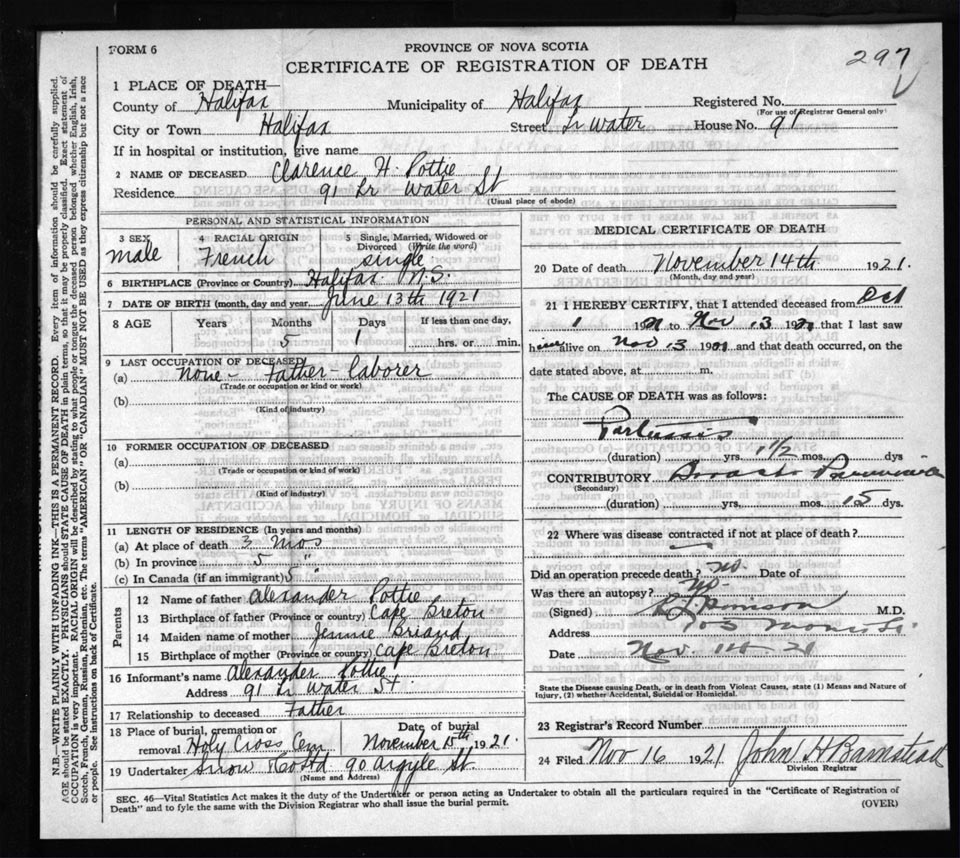 FORM 6
PROVINCE OF NOVA SCOTIA
CERTIFICATE OF REGISTRATION OF DEATH
297
1 PLACE OF DEATH—
County of Halifax Municipality of Halifax Registered No.
(For use of Registrar General only)
City or Town Halifax Street Lr Water House No. 91
If in hospital or institution, give name
2 NAME OF DECEASED Clarence H. Pottie
Residence 91 Lr. Water St
(Usual place of abode)
PERSONAL AND STATISTICAL INFORMATION
3 SEX 4 RACIAL ORIGIN 5 Single, Married, Widowed or Divorced (Write the word)
male French single
6 BIRTHPLACE (Province or Country) Halifax N.S.
7 DATE OF BIRTH (month, day and year) June 13th 1921
8 AGE Years Months Days If less than one day,
5 1 hrs. or min.
9 LAST OCCUPATION OF DECEASED
(a) None - Father - laborer
(Trade or occupation or kind or work)
(b)
(Kind of industry)
10 FORMER OCCUPATION OF DECEASED
(a)
(Trade or occupation or kind of work)
(b)
(Kind of industry)
11 LENGTH OF RESIDENCE (In years and months)
(a) At place of death 3 mos
(b) In province 5 "
(c) In Canada (if an immigrant) 5 "
Parents
12 Name of father Alexander Pottie
13 Birthplace of father (Province or country) Cape Breton
14 Maiden name of mother Jennie Briand
15 Birthplace of mother (Province or country) Cape Breton
16 Informant's name Alexander Pottie
Address 91 Lr Water St.
17 Relationship to deceased Father
18 Place of burial, cremation or removal Holy Cross Cem Date of burial November 15th, 1921.
19 Undertaker Snow & Co Ltd 90 Argyle St.
(Name and Address)
MEDICAL CERTIFICATE OF DEATH
20 Date of death November 14th 1921.
(Month, day and year)
21 I HEREBY CERTIFY, that I attended deceased from Oct
1 1921 to Nov 13 1921 that I last saw
him alive on Nov 13 1921 and that death occurred, on the
date stated above, at m.
The CAUSE OF DEATH was as follows:
Pertussis
(duration) yrs. 1 1/2 mos. dys
CONTRIBUTORY Broncho Pneumonia
(Secondary)
(duration) yrs. mos. 15 dys.
22 Where was disease contracted if not at place of death?
Did an operation precede death? no. Date of
Was there an autopsy? no.
(Signed) M.D.
Address 103
Date Nov. 14 - 21
State the Disease causing Death, or in death from Violent Causes, state (1) Means and Nature of
Injury, (2) whether Accidental, Suicidal or Homicidal.
23 Registrar's Record Number
24 Filed Nov 16 1921 John H Barnstead
Division Registrar
SEC. 46—Vital Statistics Act makes it the duty of the Undertaker or person acting as Undertaker to obtain all the particulars required in the "Certificate of Registration of
Death" and to fyle the same with the Division Registrar who shall issue the burial permit.
(OVER)
N.B.—WRITE PLAINLY WITH UNFADING INK—THIS IS A PERMANENT RECORD. Every item of information should be carefully supplied.
AGE should be stated EXACTLY. PHYSICIANS should STATE CAUSE OF DEATH in plain terms, so that it may be properly classified. Exact statement of
OCCUPATION is very important. RACIAL ORIGIN will be described by stating to what people or tongue the deceased person belonged whether English, Irish,
Scotch, French, German, Russian, Ruthenian, etc. The terms "AMERICAN" OR "CANADIAN" MUST NOT BE USED as they express citizenship but not a race
or people. See instructions on back of Certificate.